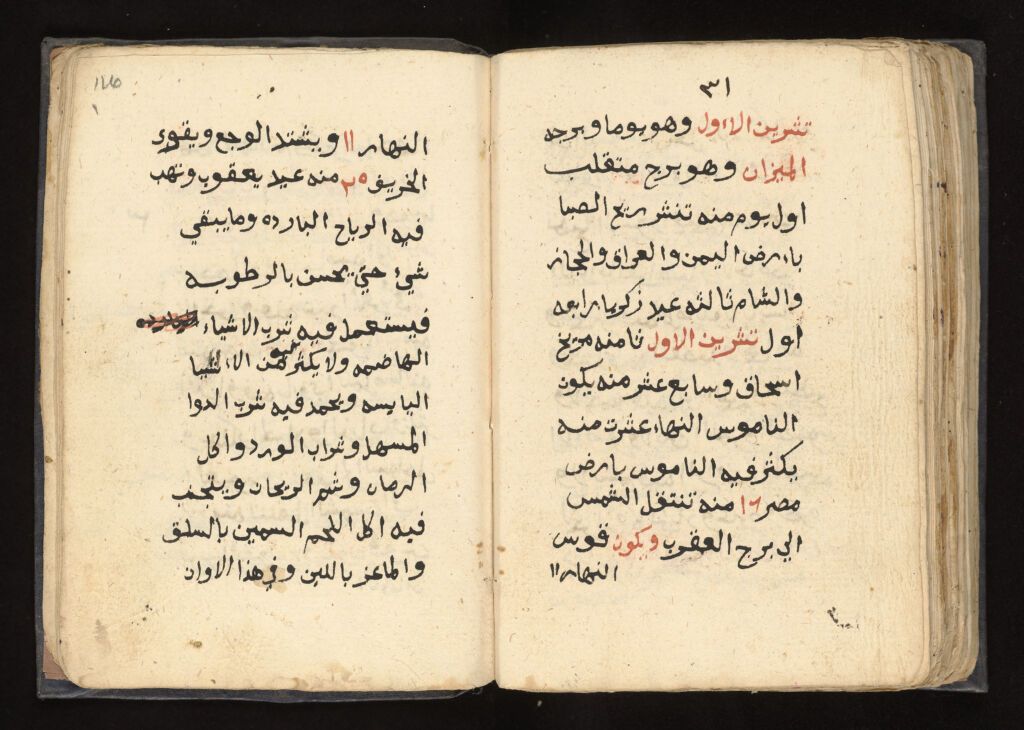 ٣١
تشرين الاول وهو يوما وبرجه
الميزان وهو برج متقلب
اول يوم منه تنشر ريح الصبا
بارض اليمن والعراق والحجاز
والشام ثالثه عيد زكريا رابعه
اول تشرين الاول ثامنه مريخ
اسحاق وسابع عشر منه يكون
الناموس النهاء عشرت منه
يكثر فيه الناموس بارض
مصر ١٦ منه تنتقل الشمس
الي برج العقرب ويكون قوس
النهار ١١
النهار ١١ ويشتد الوجع ويقوى
الخريف ٢٥ منه عيد يعقوب وتهب
فيه الرياح البارده وما يبقي
شيء حتي يحسن بالرطوبه
فيستعمل فيه شرب الاشياء
الهاضمه ولا يكثر من الاشيا
اليابسه ويحمد فيه شرب الدوا
المسهل وشراب الورد واكل
الرمان وشم الريحان ويتجنب
فيه اكل اللحم السمين بالسلق
والماعز باللبن وفي هذا الاوان